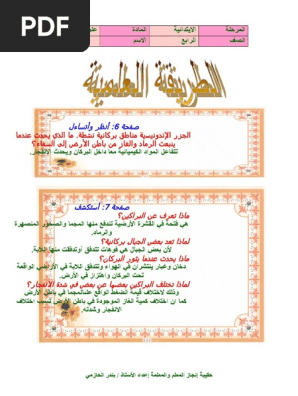 PDF
المرحلة الابتدائية المادة علو
الصف الرابع الاسم
الطريقة العلمية
صفحة 6: أنظر وأتساءل
الجزر الإندونيسية مناطق بركانية نشطة. ما الذي يحدث عندما
ينبعث الرماد والغاز من باطن الأرض إلى السماء؟
تتفاعل المواد الكيميائية معا داخل البركان ويحدث الانفجار.
صفحة 7: أستكشف
ماذا تعرف عن البراكين؟
هي فتحة في القشرة الأرضية تندفع منها المجما والصخور المنصهرة
والرماد.
لماذا تعد بعض الجبال بركانية؟
لأن بعض الجبال هي فوهات تتدفق أوتدفقت منها اللابة.
ماذا يحدث عندما يثور البركان؟
دخان وغبار ينتشران في الهواء وتتدفق اللابة في الأراضي الواقعة
تحت البركان واهتزاز في الأرض.
لماذا تختلف البراكين بعضها عن بعض في شدة الانفجار؟
وذلك لاختلاف قيمة الضغط الواقع علىالمجما في باطن الأرض
كما ان اختلاف كمية الغاز الموجودة في باطن الأرض تسبب اختلاف
الانفجار وشدته.
حقيبة إنجاز المعلم والمعلمة إعداد الأستاذ / بندر الحازمي